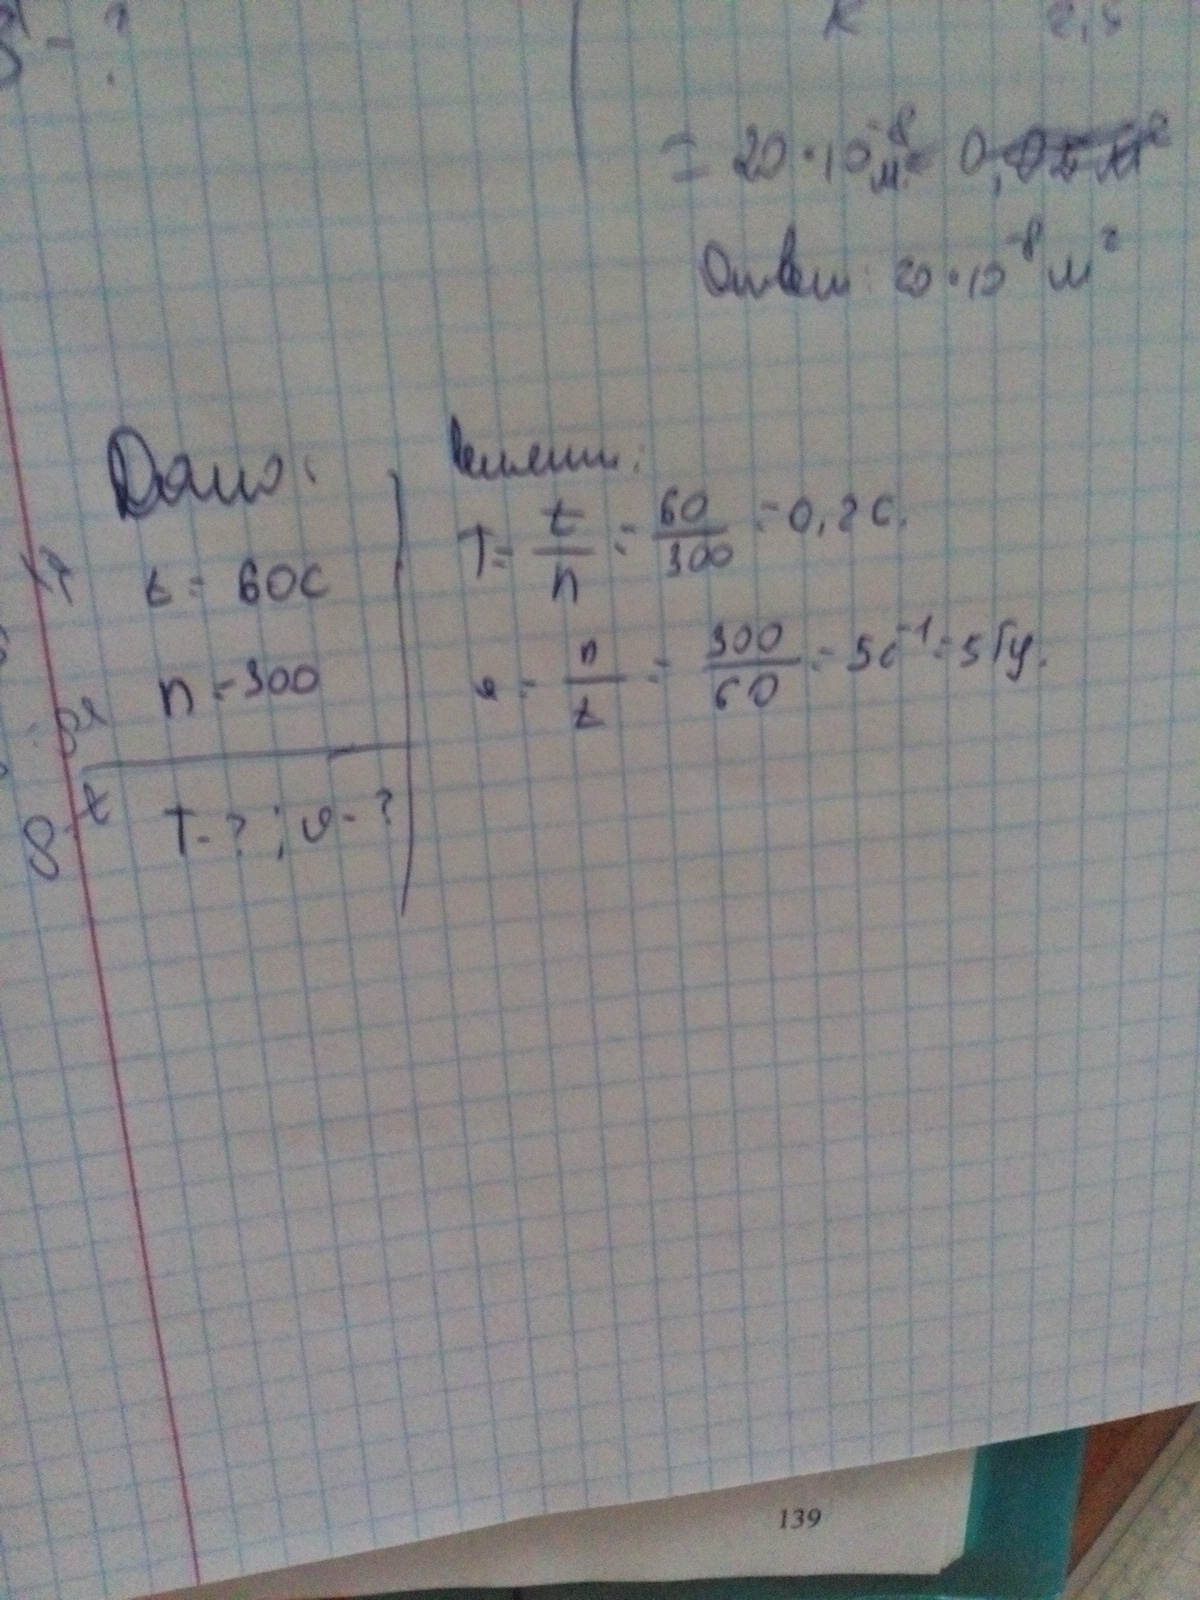 S - ?
k 2,5
= 20 · 10⁻⁸ м² 0,
Ответ: 20 · 10⁻⁸ м²
Дано:
t = 60 с
n = 300
T - ? ; υ - ?
Решение:
T = t/n = 60/300 = 0,2 с.
υ = n/t = 300/60 = 5 с⁻¹ = 5 Гц.
139